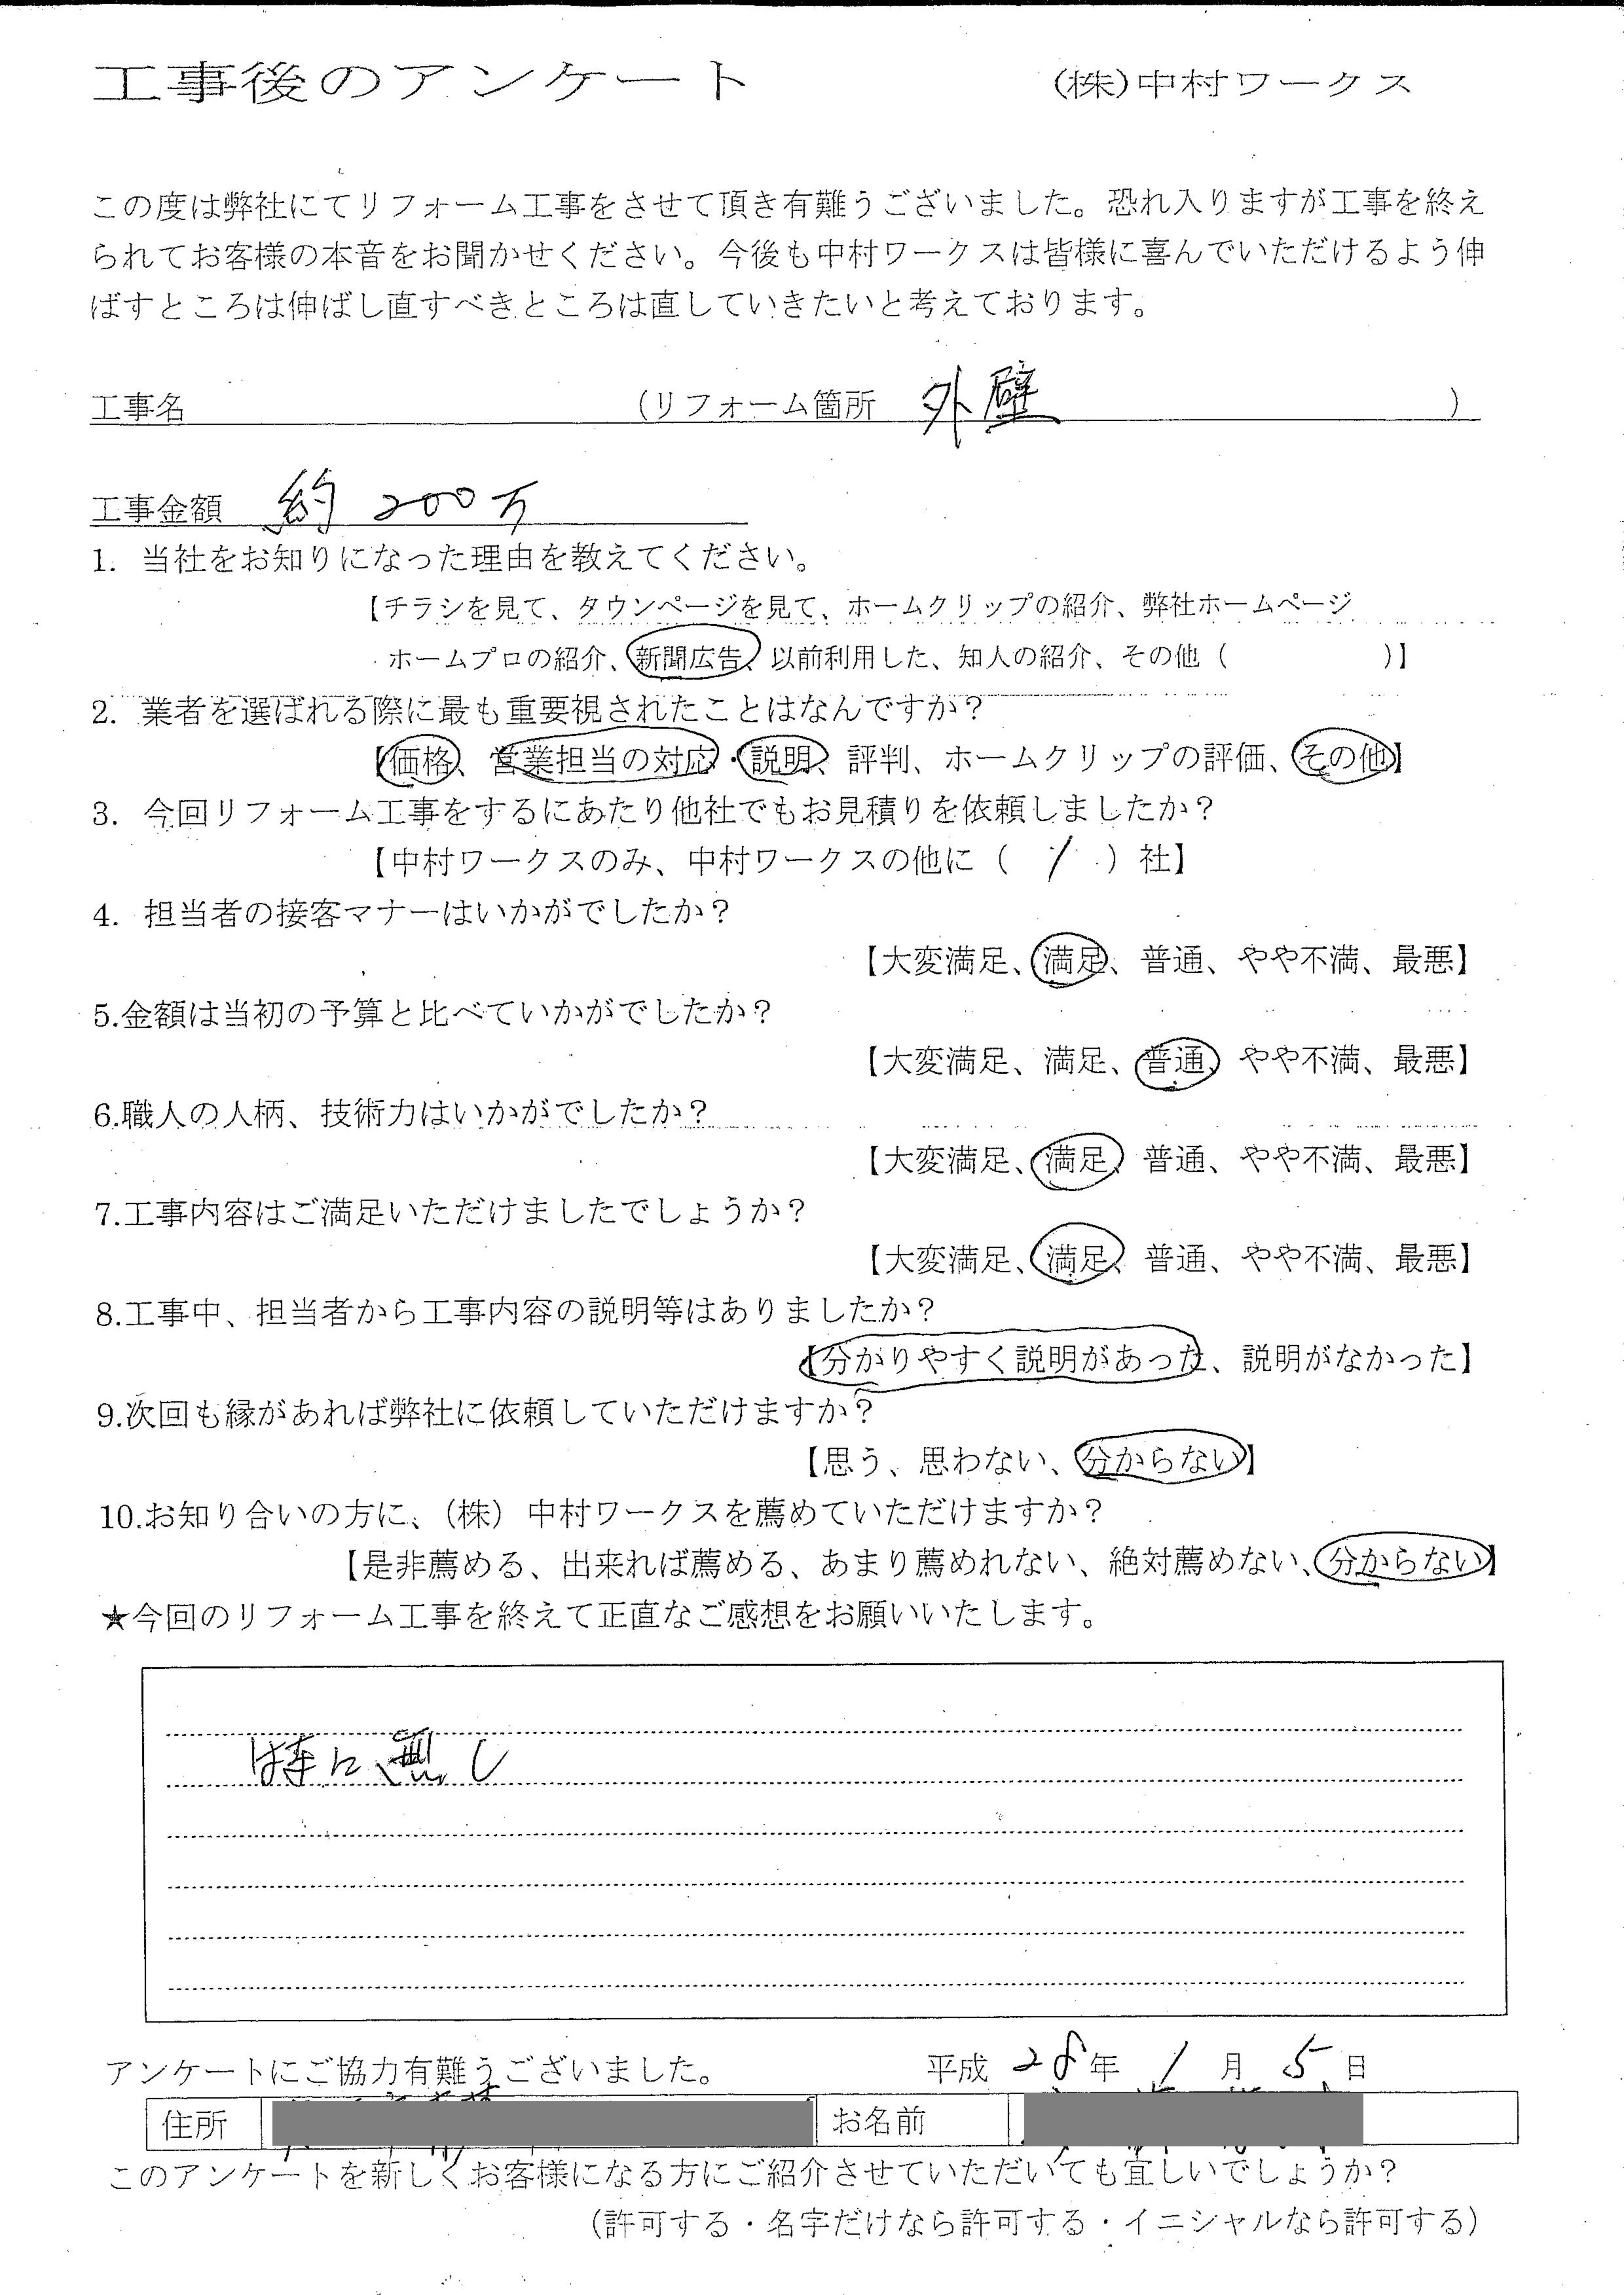 工事後のアンケート　(株)中村ワークス
この度は弊社にてリフォーム工事をさせて頂き有難うございました。恐れ入りますが工事を終え
られてお客様の本音をお聞かせください。今後も中村ワークスは皆様に喜んでいただけるよう伸
ばすところは伸ばし直すべきところは直していきたいと考えております。
工事名　(リフォーム箇所　外壁　)
工事金額　約200万
1. 当社をお知りになった理由を教えてください。
【チラシを見て、タウンページを見て、ホームクリップの紹介、弊社ホームページ
ホームプロの紹介、新聞広告、以前利用した、知人の紹介、その他（　）】
2. 業者を選ばれる際に最も重要視されたことはなんですか？
【価格、営業担当の対応・説明、評判、ホームクリップの評価、その他】
3. 今回リフォーム工事をするにあたり他社でもお見積りを依頼しましたか？
【中村ワークスのみ、中村ワークスの他に（ 1 ）社】
4. 担当者の接客マナーはいかがでしたか？
【大変満足、満足、普通、やや不満、最悪】
5.金額は当初の予算と比べていかがでしたか？
【大変満足、満足、普通、やや不満、最悪】
6.職人の人柄、技術力はいかがでしたか？
【大変満足、満足、普通、やや不満、最悪】
7.工事内容はご満足いただけましたでしょうか？
【大変満足、満足、普通、やや不満、最悪】
8.工事中、担当者から工事内容の説明等はありましたか？
【分かりやすく説明があった、説明がなかった】
9.次回も縁があれば弊社に依頼していただけますか？
【思う、思わない、分からない】
10.お知り合いの方に、（株）中村ワークスを薦めていただけますか？
【是非薦める、出来れば薦める、あまり薦めれない、絶対薦めない、分からない】
★今回のリフォーム工事を終えて正直なご感想をお願いいたします。
特に無し
アンケートにご協力有難うございました。　平成28年1月5日
住所　お名前
このアンケートを新しくお客様になる方にご紹介させていただいても宜しいでしょうか？
（許可する・名字だけなら許可する・イニシャルなら許可する）